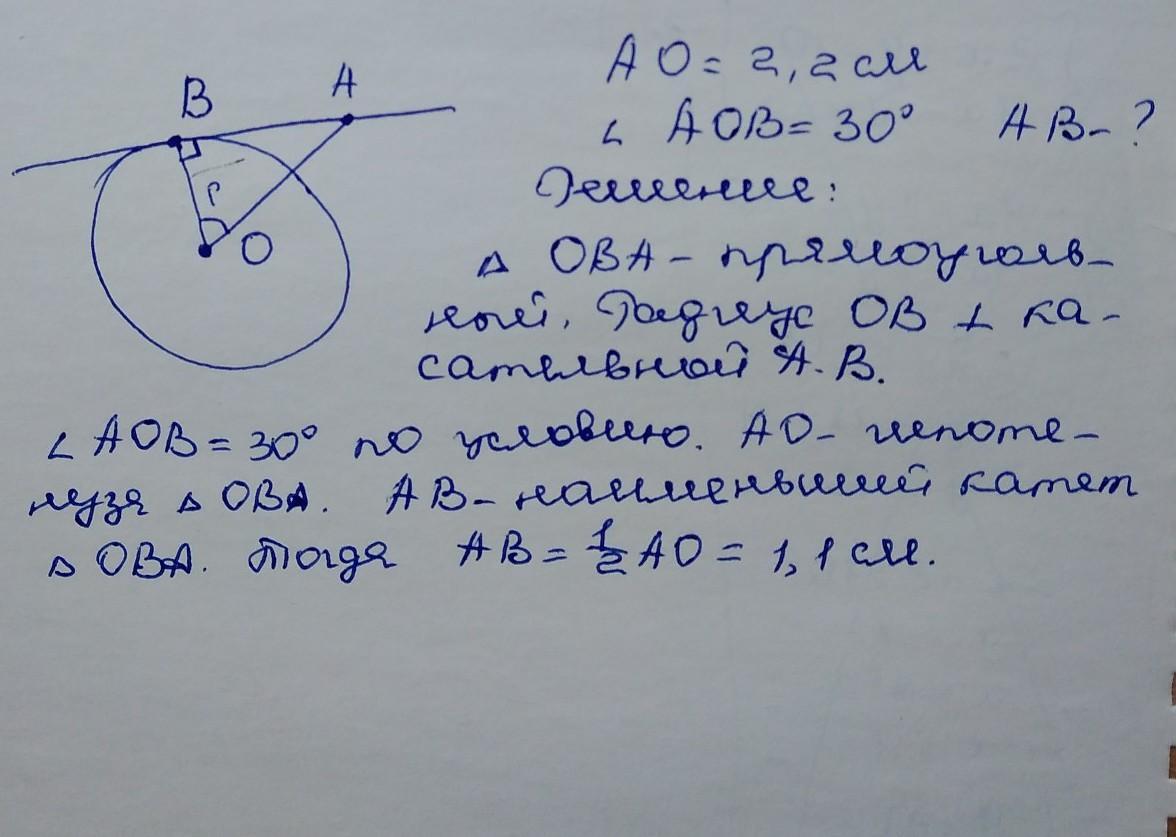 B A
r
O
AO = 2,2 см
∠ AOB = 30° AB - ?
Решение:
△ OBA - прямоуголь-
ный. Радиус OB ⊥ ка-
сательной A.B.
∠ AOB = 30° по условию. AO - гипоте-
нуза △ OBA. AB - наименьший катет
△ OBA. Тогда AB = 1/2 AO = 1,1 см.